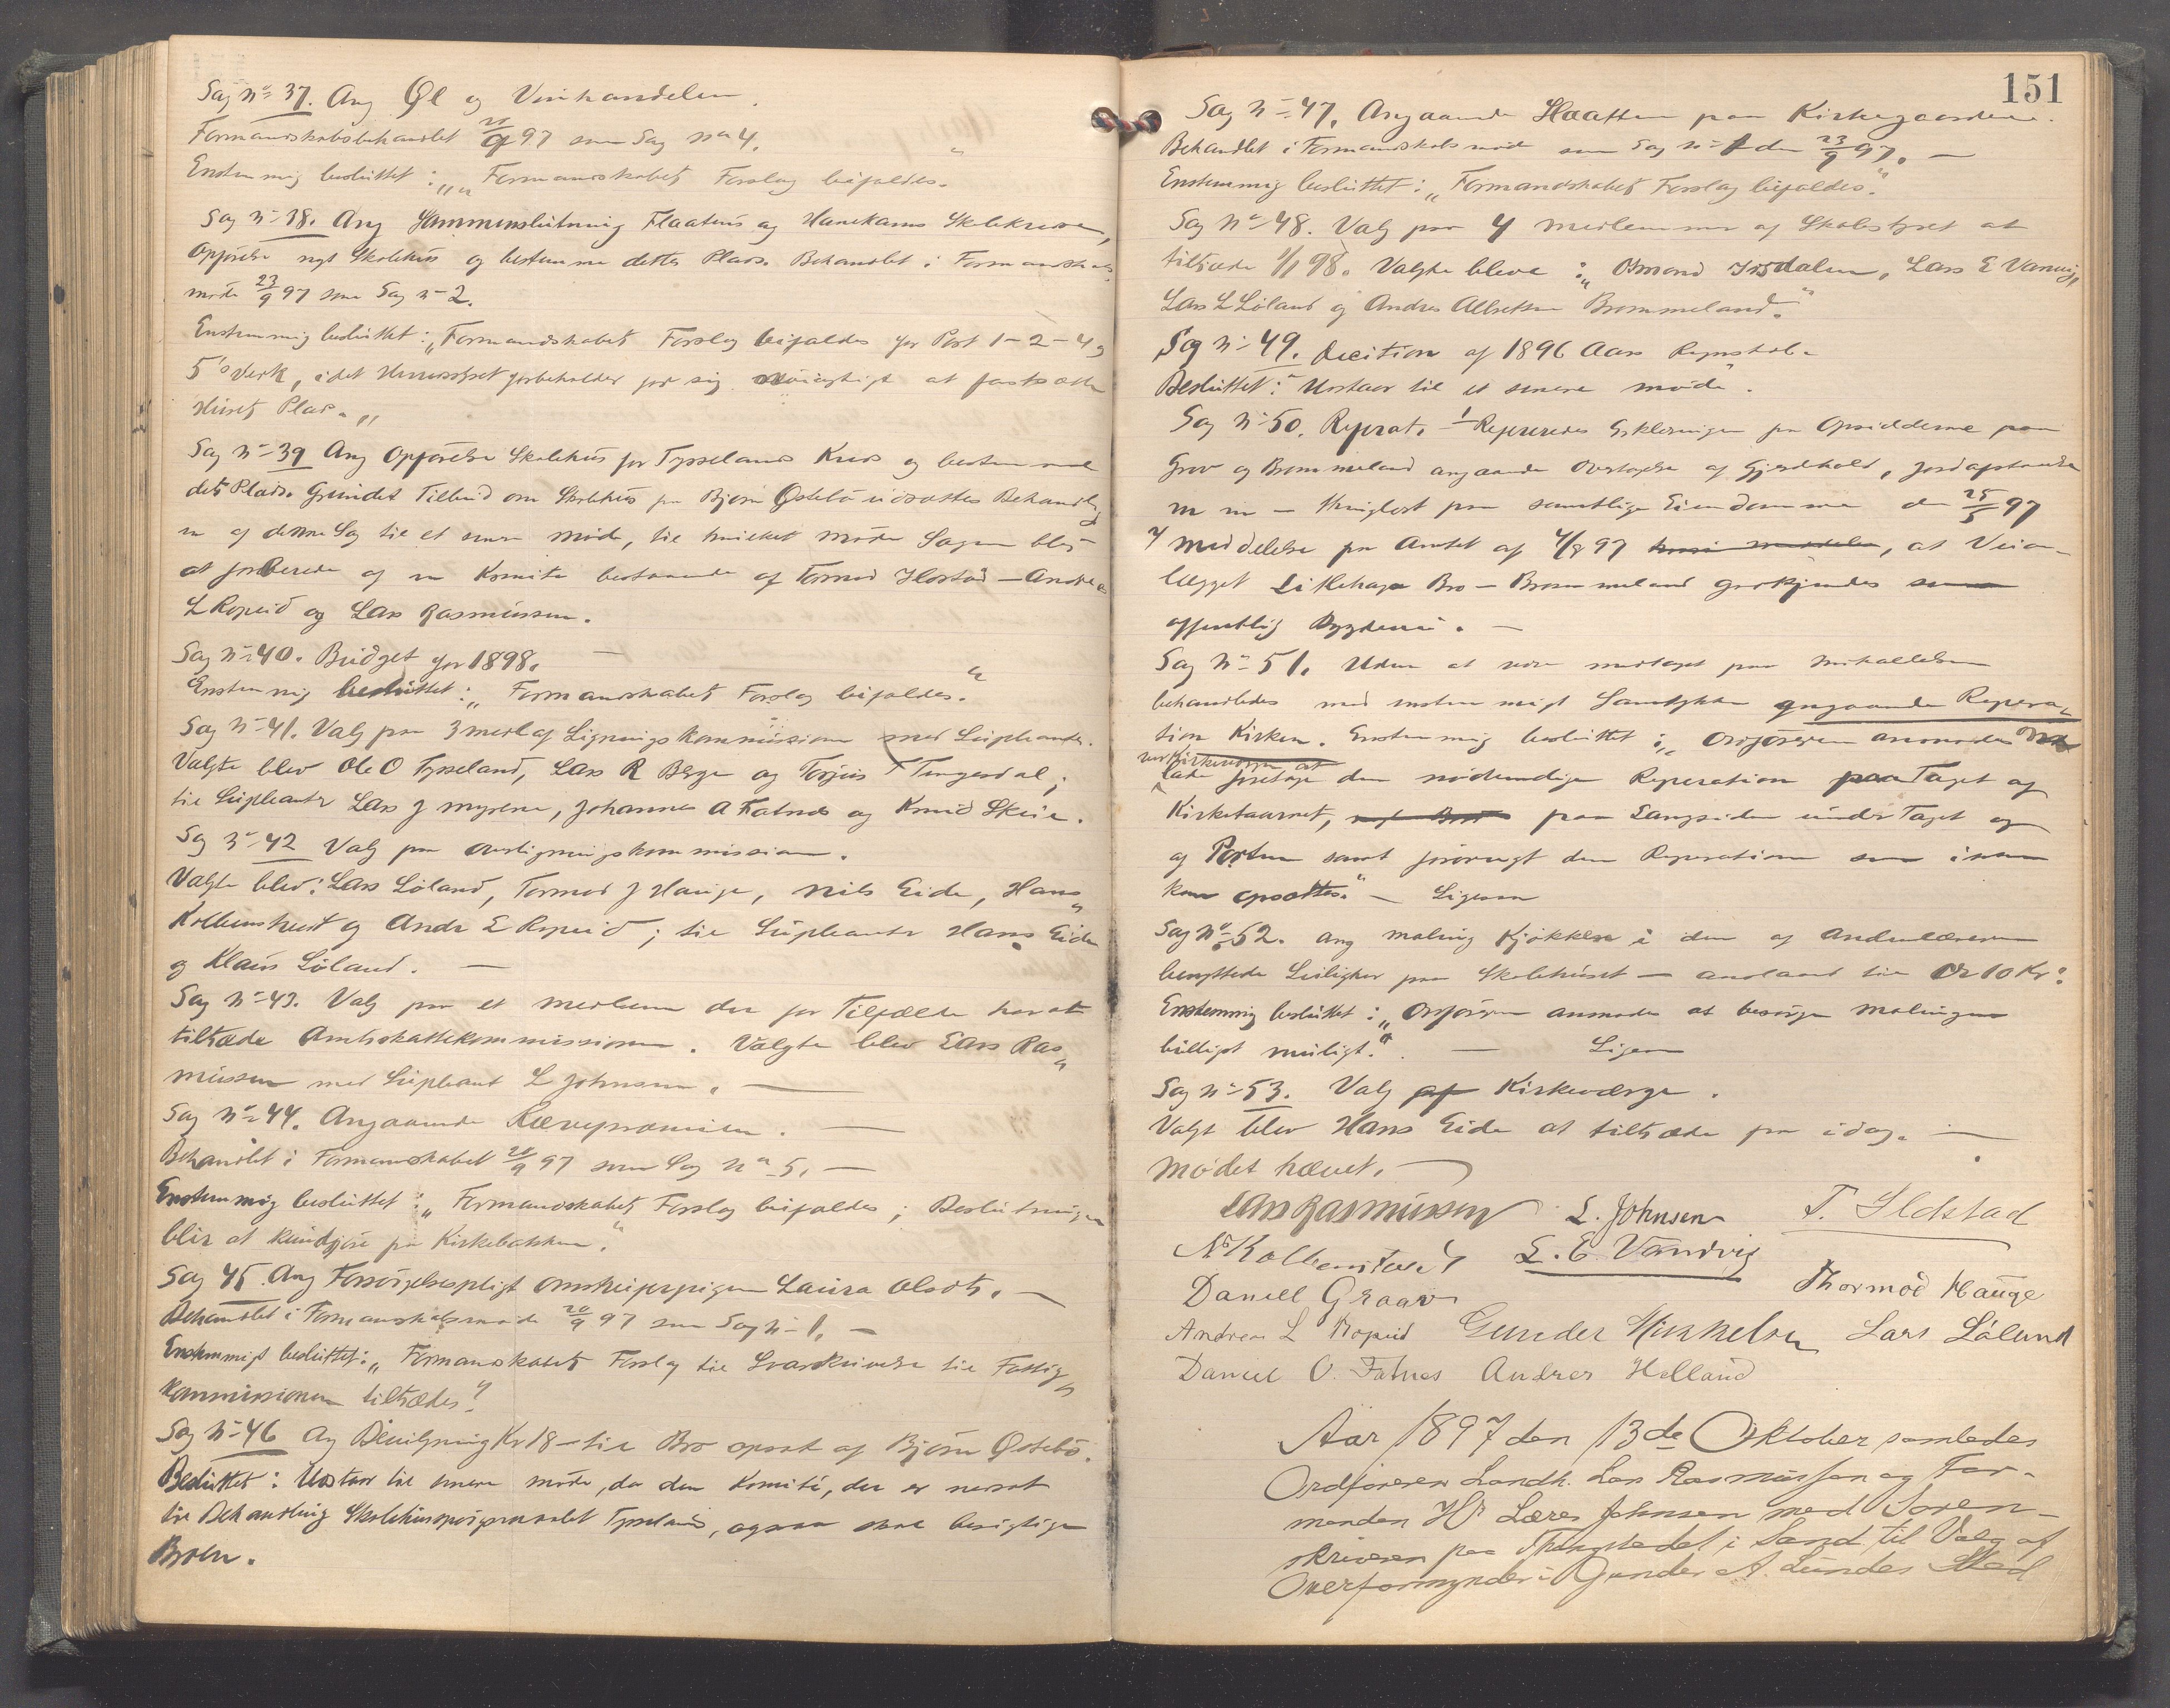 Sag No 37. Ang Øl og Vinhandelen.
Formandskabsbehandlet 20/9 97 som Sag No 4.
Enstemmig besluttet: „Formandskabets Forslag bifaldes."
Sag No 38. Ang Sammenslutning Flaatens og Hanekams Skolekredse,
Opførelse nyt Skolehus og bestemme dettes Plads. Behandlet i Formandskabs
møde 23/9 97 som Sag No 2.
Enstemmig besluttet: „Formandskabets Forslag bifaldes for Post 1-2-4 og
5's Verk, idet Herredsstyret forbeholder for sig at fastsætte
Husets Plads."
Sag No 39 Ang Opførelse Skolehus for Tysselands Kreds og bestemmelse
dets Plads. Grundet Tilbud om Skolehus fra Bjørn Østebø udsættes Behandling
en af denne Sag til et senere Møde, til hvilket Møde Sagen blev
at forberede af en Komite bestaaende af Tormod Ilostad – Andreas
L Ropeid og Lars Rasmussen.
Sag No 40. Budget for 1898. —
Enstemmig besluttet: „Formandskabets Forslag bifaldes."
Sag No 41. Valg paa 3 medl af Ligningskommissionen med Supleanter.
Valgte blev Ole O Tysseland, Lars R Berge og Torjus T Tengesdal;
til Supleanter Lars J Myrene, Johannes A Fatnes og Knud Skeie.
Sag No 42 Valg paa Overligningskommission.
Valgte blev: Lars Løland, Tormod J Hauge, Nils Eide, Hans
Kolbenstvedt og Andr L Ropeid; til Supleanter Hans Eide
og Klaus Løland. —
Sag No 43. Valg paa et medlem der for Tilfælde har at
tiltræde Amtsskattekommissionen. Valgte blev Lars Ras„
mussen med Supleant L Johnsen. —
Sag No 44. Angaaende Rævepræmien. —
Behandlet i Formandskabet 20/9 97 som Sag No 5. —
Enstemmig besluttet: „Formandskabets Forslag bifaldes; Beslutningen
blir at kundgjøre paa Kirkebakken."
Sag 45. Ang Forsørgelsespligt Laura Olsdt. —
Behandlet i Formandskabsmøde 20/9 97 som Sag No 1. —
Enstemmigt besluttet: „Formandskabets Forslag til Svarskrivelse til Fattig„
kommissionen tiltrædes."
Sag No 46 Ang Bevilgning Kr 18 – til Bro opsat af Bjørn Østebø.
Besluttet: Udstaar til senere møde, da den Komité, der er nævnt
til Behandling Skolehusspørgsmaalet Tysseland, ogsaa skal besigtige
Broen.
151
Sag No 47. Angaaende Haatten paa Kirkegaardene.
Behandlet i Formandskabsmøde som Sag No 1 den 23/9 97. —
Enstemmig besluttet: „Formandskabets Forslag bifaldes."
Sag No 48. Valg paa 4 medlemmer af Skolestyret at
tiltræde 1/1 98. Valgte bleve: „Osmond Lars E Vanvig,
Lars L Løland og Andres Albretsen Brommeland."
Sag No 49. Decition af 1896 Aars Regnskab.
Besluttet: „Udstaar til et senere møde".
Sag No 50. Referat. 1 Refereredes Erklæringen fra Opsidderne paa
Grov og Brommeland angaaende Overtagelse af Gjerdehold, Jordafstaaelse
m m – thinglæst paa samtlige Eiendomme den 25/5 97
2 Meddelelse fra Amtet af 4/8 97, at Veian-
lægget Litlehaga Bro – Brommeland godkjendes som
offentlig Bygdevei. —
Sag No 51. Uden at være medtaget paa Indkaldelsen
behandledes med enstemmigt Samtykke angaaende Repera„
tion Kirken. Enstemmig besluttet: „Ordføreren anmodes
ved Kirkevergen at
lade foretage den nødvendige Reperation paa Taget og
Kirketaarnet, paa Langsiden under Taget og
og Porten samt forøvrigt den Reperation som ikke
kan opsættes." — Ligesaa
Sag No 52. ang maling Kjøkken i den af Andenlæreren
benyttede Leilighed paa Skolehuset – anslaaet til Cr 10 Kr:
Enstemmig besluttet: „Ordføreren anmodes at besørge malingen
billigst muligt." — Ligesaa
Sag No 53. Valg af Kirkeværge.
Valgt blev Hans Eide at tiltræde fra idag. —
Mødet hævet. —
Lars Rasmussen L. Johnsen T. Ilostad
N Kolbenstvedt L. E. Vandvig
Daniell Graar Thormod Hauge
Andreas L Ropeid Gunder Mikkelsen Lars Løland
Daniel O. Fatnes Andres Helland
Aar 1897 den 13de Oktober samledes
Ordføreren Landh. Lars Rasmussen og For-
manden Hr. Lærer Johnsen med Soren-
skriveren paa Thingstedet i Sand til Valg af
Overformynder i Gunder A. Lundes Sted